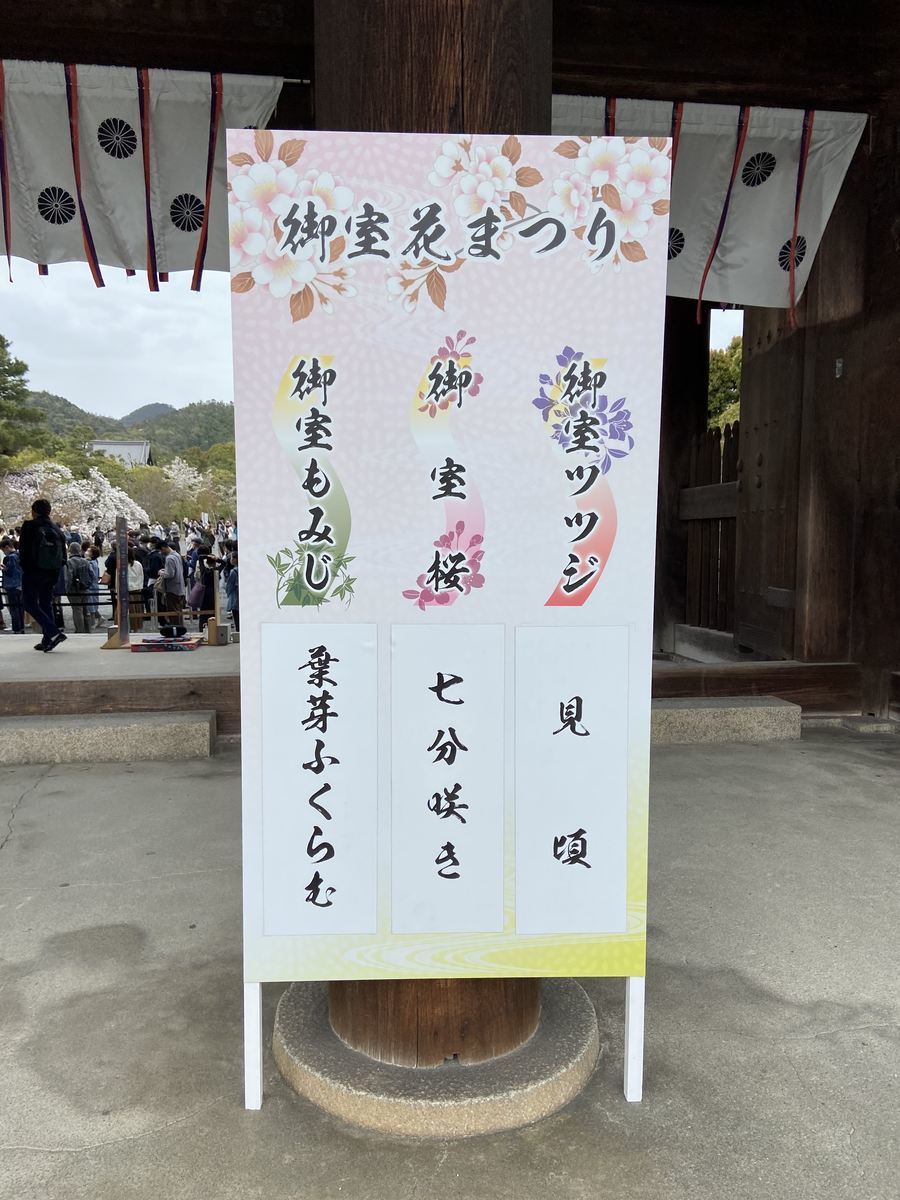 御室花まつり
御室ツツジ
見頃
御室桜
七分咲き
御室もみじ
葉芽ふくらむ